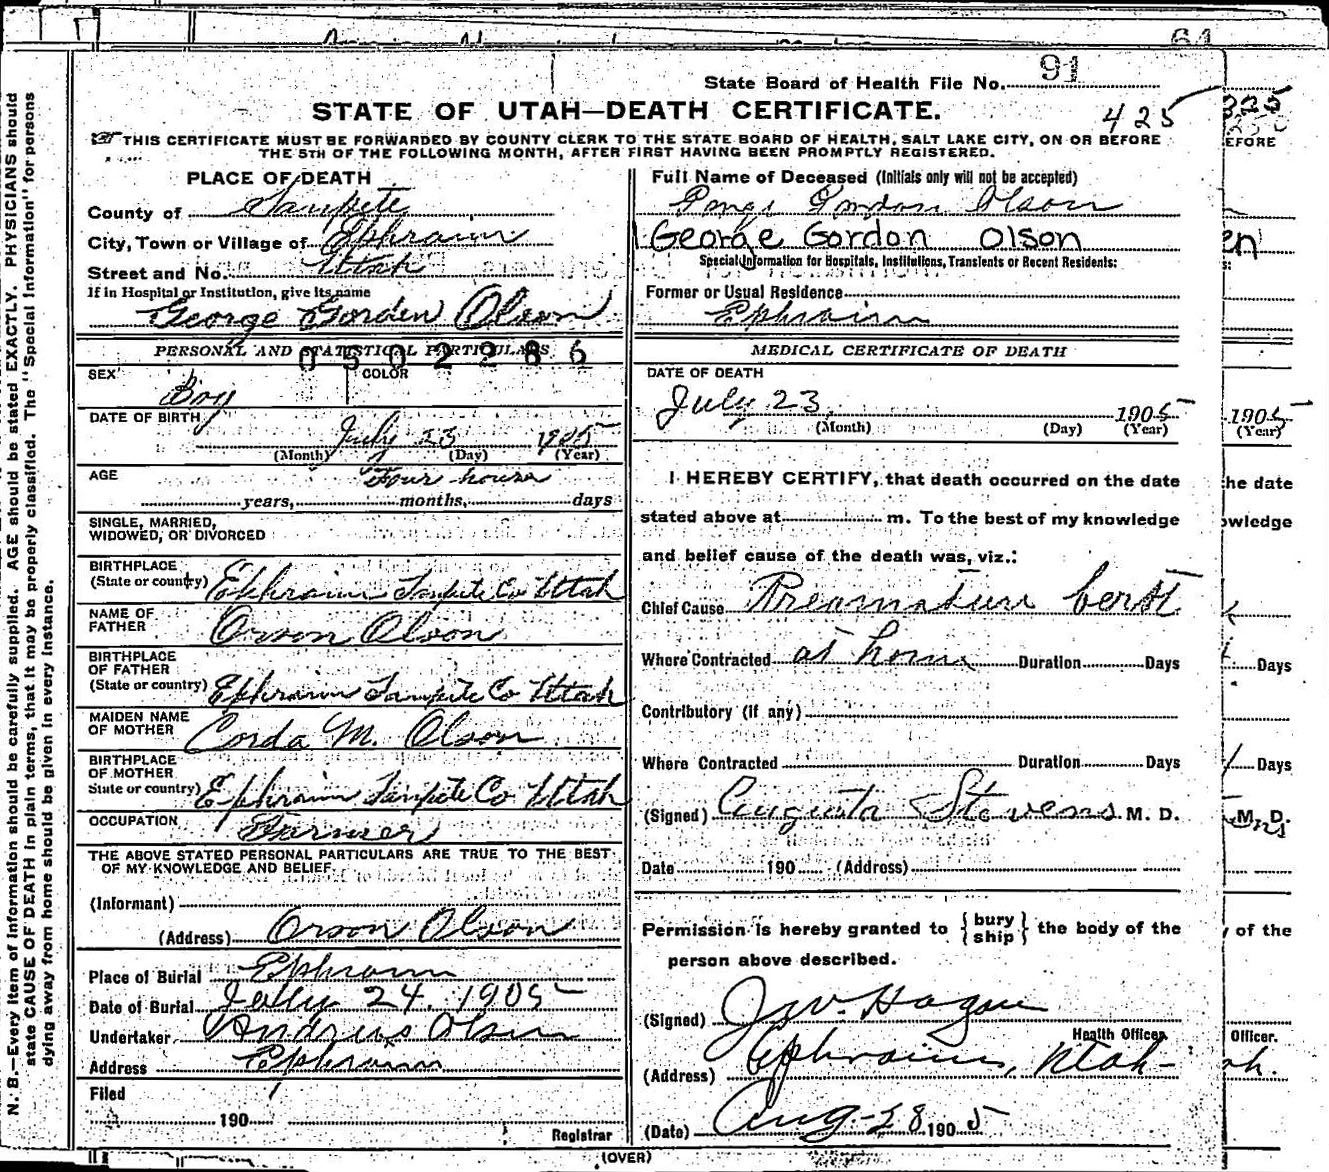 64
State Board of Health File No. 91
STATE OF UTAH—DEATH CERTIFICATE.
425
THIS CERTIFICATE MUST BE FORWARDED BY COUNTY CLERK TO THE STATE BOARD OF HEALTH, SALT LAKE CITY, ON OR BEFORE
THE 5TH OF THE FOLLOWING MONTH, AFTER FIRST HAVING BEEN PROMPTLY REGISTERED.
N. B.—Every item of information should be carefully supplied. AGE should be stated EXACTLY. PHYSICIANS should
state CAUSE OF DEATH in plain terms, that it may be properly classified. The "Special Information" for persons
dying away from home should be given in every instance.
PLACE OF DEATH
County of Sanpete
City, Town or Village of Ephraim
Street and No. Utah
If in Hospital or Institution, give its name
George Gorden Olson
PERSONAL AND STATISTICAL PARTICULARS
0502286
SEX Boy COLOR
DATE OF BIRTH
July 23 1905
(Month) (Day) (Year)
AGE Four hours
years, months, days
SINGLE, MARRIED,
WIDOWED, OR DIVORCED
BIRTHPLACE
(State or country) Ephraim Sanpete Co Utah
NAME OF
FATHER Orson Olson
BIRTHPLACE
OF FATHER
(State or country) Ephraim Sanpete Co Utah
MAIDEN NAME
OF MOTHER Corda M. Olson
BIRTHPLACE
OF MOTHER
State or country) Ephraim Sanpete Co Utah
OCCUPATION Farmer
THE ABOVE STATED PERSONAL PARTICULARS ARE TRUE TO THE BEST
OF MY KNOWLEDGE AND BELIEF.
(Informant)
(Address) Orson Olson
Place of Burial Ephraim
Date of Burial July 24. 1905
Undertaker Andrew Olson
Address Ephraim
Filed
190
Registrar
Full Name of Deceased (Initials only will not be accepted)
George Gordon Olson
George Gordon Olson
Special Information for Hospitals, Institutions, Transients or Recent Residents:
Former or Usual Residence
Ephraim
MEDICAL CERTIFICATE OF DEATH
DATE OF DEATH
July 23, 1905
(Month) (Day) (Year)
I HEREBY CERTIFY, that death occurred on the date
stated above at m. To the best of my knowledge
and belief cause of the death was, viz.:
Chief Cause Preamature berth
Where Contracted at home Duration Days
Contributory (if any)
Where Contracted Duration Days
(Signed) Augusta Stevens M. D.
Date 190 (Address)
Permission is hereby granted to { bury ship } the body of the
person above described.
(Signed) J.W. Hagan
Health Officer.
(Address) Ephraim, Utah-
(Date) Aug-28 1905
(OVER)
225
EFORE
en
s:
1905
(Year)
he date
owledge
Days
Days
M. D.
of the
Officer.
ah.